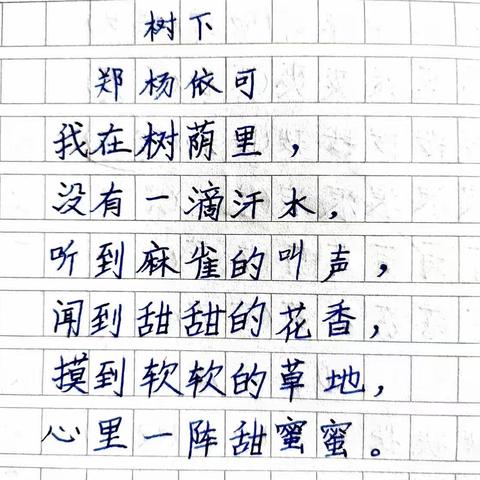 树下
郑杨依可
我在树荫里，
没有一滴汗水，
听到麻雀的叫声，
闻到甜甜的花香，
摸到软软的草地，
心里一阵甜蜜蜜。